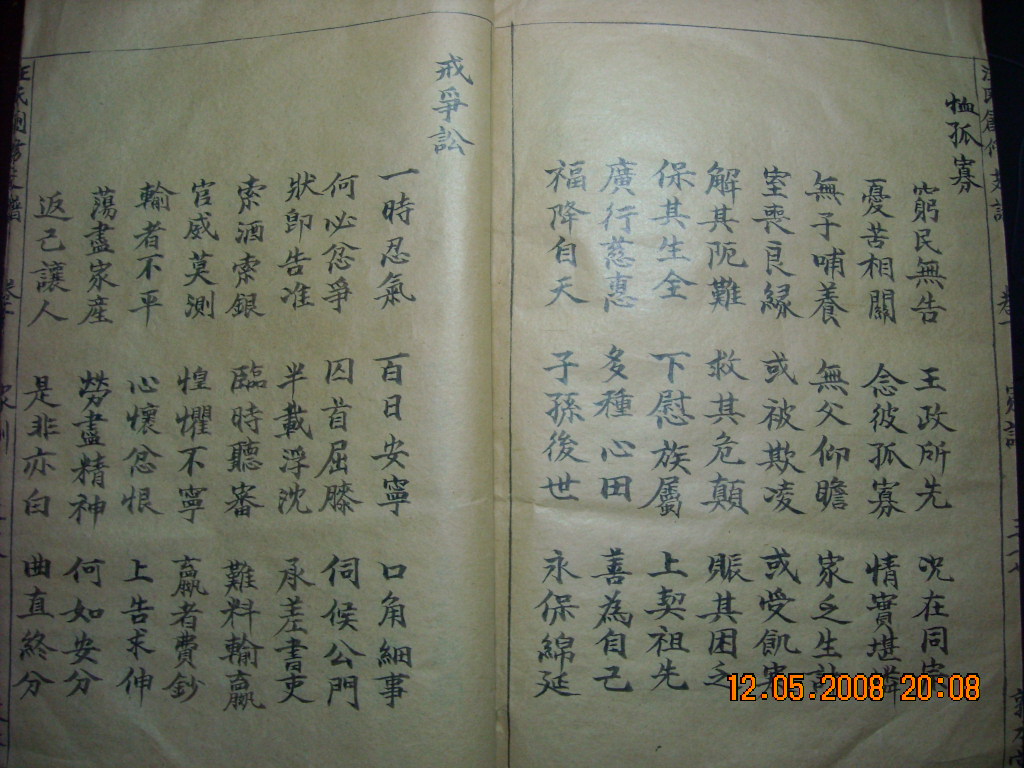 卷一 家訓
恤孤寡
窮民無告 王政所先 況在同
憂苦相關 念彼孤寡 情實堪憐
無子哺養 無父仰瞻 家乏生
室喪良緣 或被欺凌 或受飢寒
解其阨難 救其危顛 賑其困乏
保其生全 下慰族屬 上契祖先
廣行慈惠 多種心田 善為自己
福降自天 子孫後世 永保綿延
戒爭訟
一時忍氣 百日安寧 口角細事
何必忿爭 囚首屈膝 伺侯公門
狀即告准 半載浮沈 承差書吏
索酒索銀 臨時聽審 難料輸贏
官威莫測 惶懼不寧 贏者費鈔
輸者不平 心懷忿恨 上告求伸
蕩盡家産 勞盡精神 何如安分
返己讓人 是非亦白 曲直終分
12.05.2008 20:08